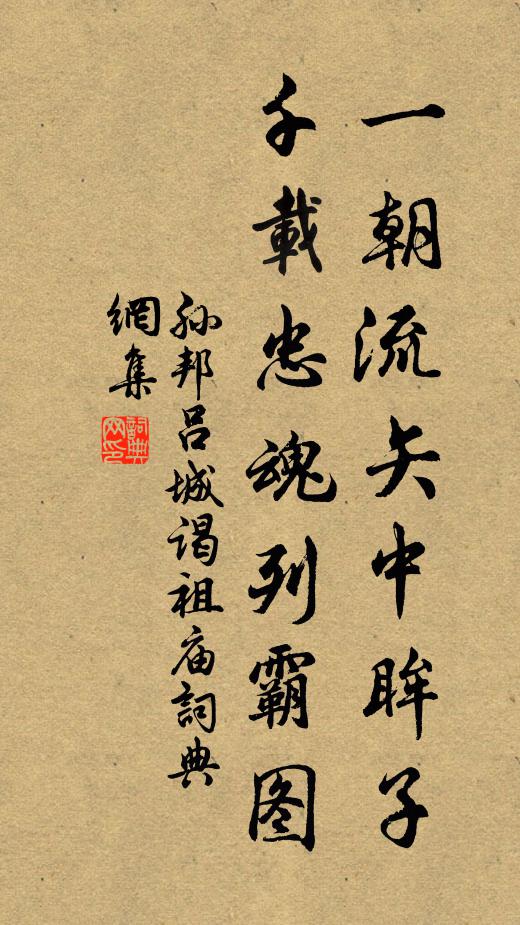 一朝流矢中眸子
千載忠魂列霸图
孙邦吕城谒祖庙詞典
網集
詞典网印